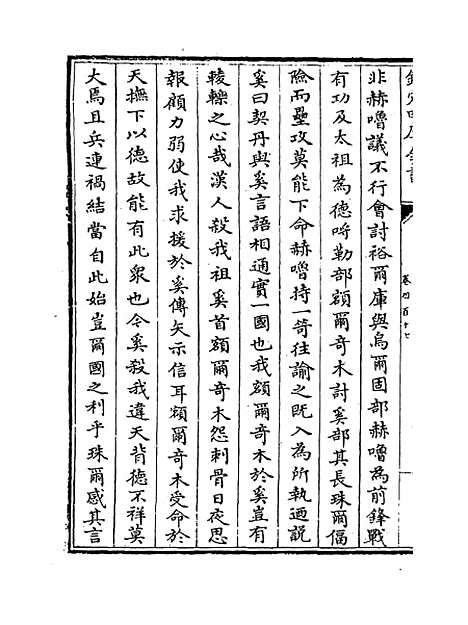 欽定四庫全書
卷四百十七
非赫嚕議不行會討裕爾庫與烏爾固部赫嚕為前鋒戰
有功及太祖為德呼勒部額爾奇木討奚部其長珠爾偪
險而壘攻莫能下命赫嚕持一笴往諭之既入為所執廼説
奚曰契丹與奚言語相通實一國也我額爾奇木於奚豈有
輘轢之心哉漢人殺我祖奚首額爾奇木怨刺骨日夜思
報顧力弱使我求援於奚傳矢示信耳額爾奇木受命於
天撫下以德故能有此衆也今奚殺我違天背德不祥莫
大焉且兵連禍結當自此始豈爾國之利乎珠爾感其言